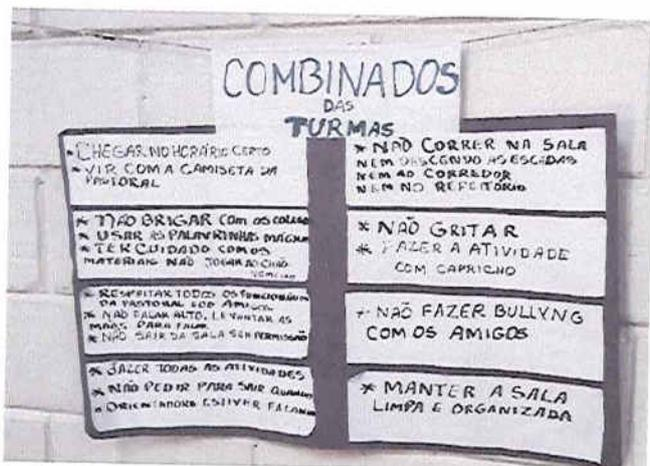 COMBINADOS
DAS
TURMAS
* CHEGAR NO HORÁRIO CERTO
* VIR COM A CAMISETA DA
PASTORAL
* NÃO BRIGAR COM OS COLEGAS
* USAR AS PALAVRINHAS MÁGICAS
* TER CUIDADO COM OS
MATERIAIS NÃO JOGAR NO CHÃO
* RESPEITAR TODOS OS FUNCIONÁRIOS
DA PASTORAL E OS AMIGOS
* NÃO FALAR ALTO, LEVANTAR AS
MÃOS PARA FALAR
* NÃO SAIR DA SALA SEM PERMISSÃO
* FAZER TODAS AS ATIVIDADES
* NÃO PEDIR PARA SAIR QUANDO
ORIENTADORA ESTIVER FALANDO
* NÃO CORRER NA SALA
NEM DESCENDO AS ESCADAS
NEM NO CORREDOR
NEM NO REFEITÓRIO
* NÃO GRITAR
* FAZER A ATIVIDADE
COM CAPRICHO
* NÃO FAZER BULLYNG
COM OS AMIGOS
* MANTER A SALA
LIMPA E ORGANIZADA